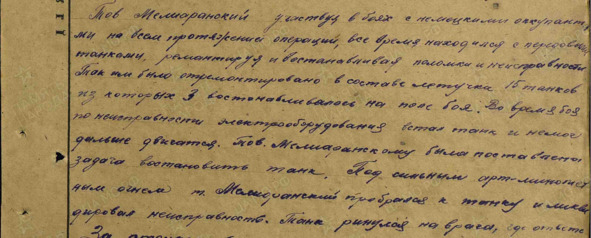 Тов Мелиаранский участвуя в боях с немецкими оккупант
ми на всем протяжении операций, все время находился с передовыми
танками, ремонтируя и востанавливая поломки и неисправности
Так им было отремонтировано в составе летучки 15 танков
из которых 3 востанавливалось на поле боя. Во время боя
по неисправности электрооборудования встал танк и немог
дальше двигатся. Тов. Мелиаранскому была поставлена
задача востановить танк. Под сильным арт-минопет
ным огнем т. Мелиаранский пробрался к танку и ликви
дировал неисправность. Танк ринулся на врага, где
За